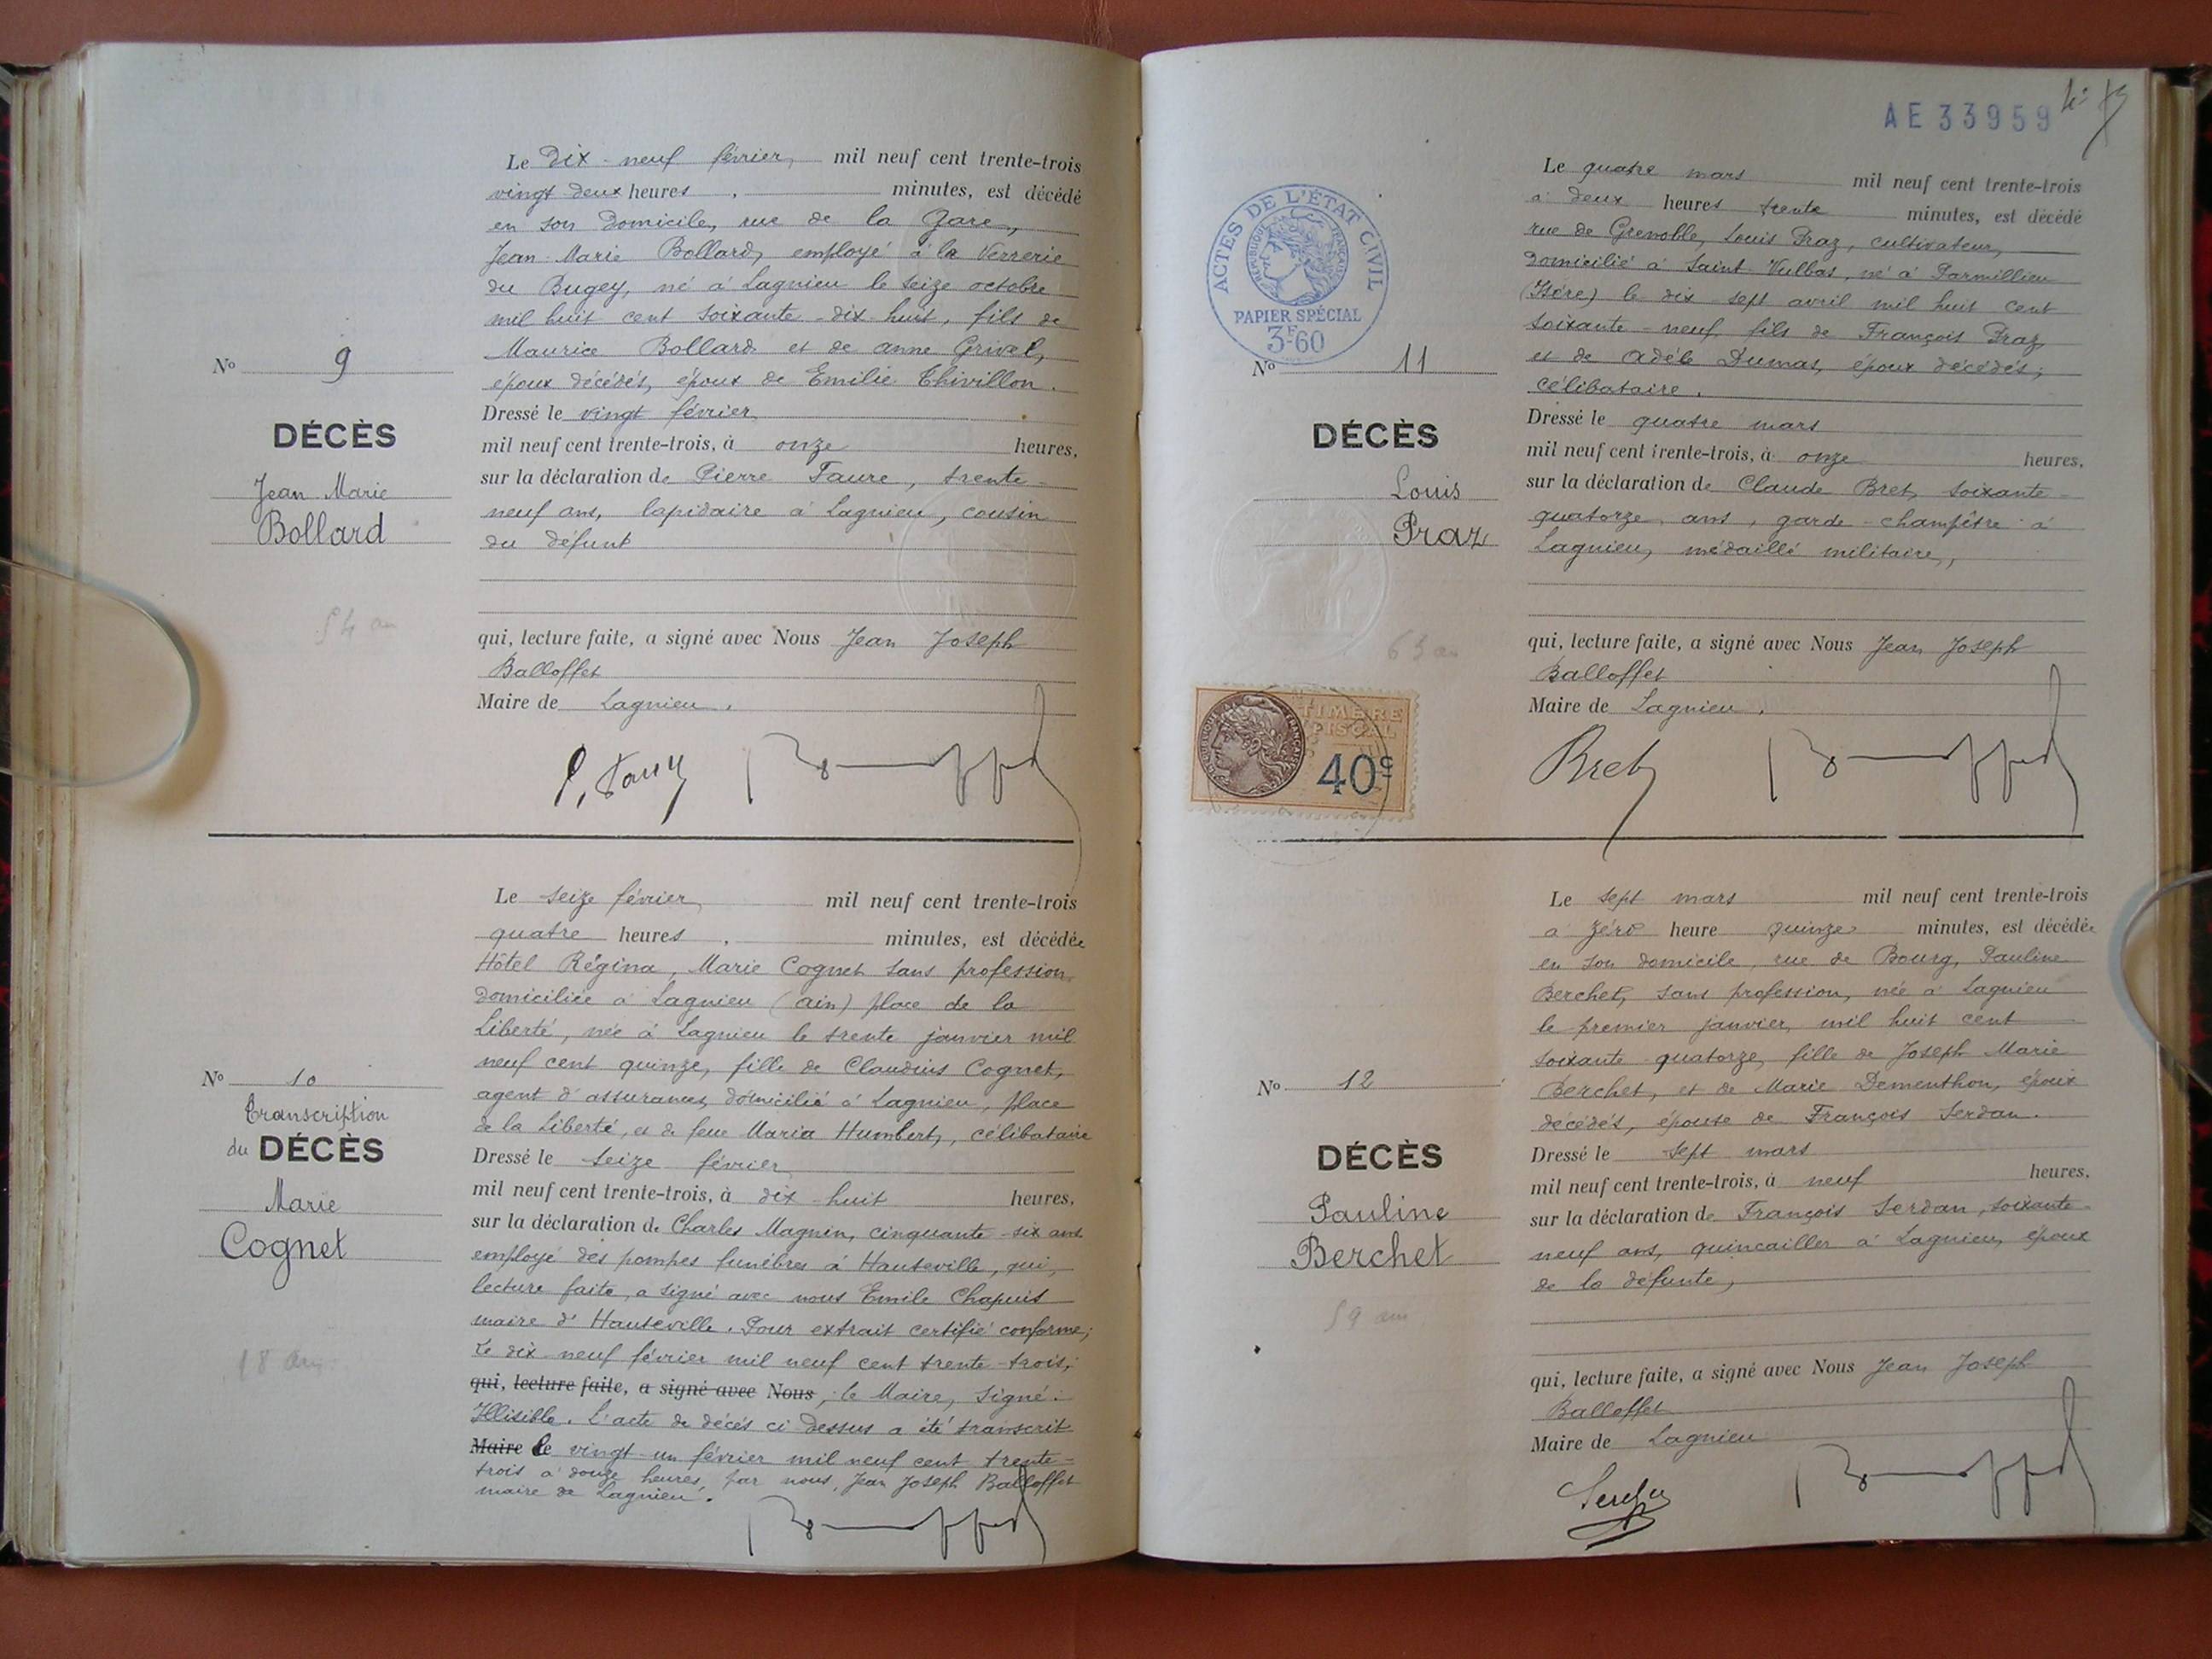 Le Dix-neuf février, mil neuf cent trente-trois
vingt deux heures, minutes, est décédé
en son domicile, rue de la Gare,
Jean-Marie Bollard, employé à la Verrerie
du Bugey, né à Lagnieu le seize octobre
mil huit cent soixante-dix-huit, fils de
Maurice Bollard et de Anne Grivel,
époux décédés, époux de Emilie Thivillon.
Dressé le vingt février
mil neuf cent trente-trois, à onze heures,
sur la déclaration de Pierre Faure, trente-
neuf ans, lapidaire à Lagnieu, cousin
du défunt
qui, lecture faite, a signé avec Nous Jean Joseph
Balloffet
Maire de Lagnieu.
No 9
DÉCÈS
Jean-Marie
Bollard
54 an
Le seize février, mil neuf cent trente-trois
quatre heures, minutes, est décédée
Hôtel Régina, Marie Cognet sans profession,
domiciliée à Lagnieu (Ain) place de la
Liberté, née à Lagnieu le trente janvier mil
neuf cent quinze, fille de Claudius Cognet,
agent d'assurances, domicilié à Lagnieu, place
de la Liberté, et de feue Maria Humbert, célibataire
Dressé le seize février
mil neuf cent trente-trois, à dix-huit heures,
sur la déclaration de Charles Magnin, cinquante-six ans
employé des pompes funèbres à Hauteville, qui,
lecture faite, a signé avec nous Emile Chapuis
maire d'Hauteville. Pour extrait certifié conforme;
Le dix-neuf février mil neuf cent trente-trois;
qui, lecture faite, a signé avec Nous, le Maire, signé:
Illisible. L'acte de décès ci dessus a été transcrit
Maire de le vingt-un février mil neuf cent trente-
trois à douze heures, par nous, Jean Joseph Balloffet
maire de Lagnieu.
No 10
Transcription
du DÉCÈS
Marie
Cognet
18 ans
AE 33959
ACTES DE L'ÉTAT CIVIL
RÉPUBLIQUE FRANÇAISE
PAPIER SPÉCIAL
3F60
Le quatre mars mil neuf cent trente-trois
à deux heures trente minutes, est décédé
rue de Grenoble, Louis Praz, cultivateur,
domicilié à Saint-Vulbas, né à Parmillieu
(Isère) le dix-sept avril mil huit cent
soixante-neuf, fils de François Praz,
et de Adèle Dumas, époux décédés;
célibataire.
Dressé le quatre mars
mil neuf cent trente-trois, à onze heures,
sur la déclaration de Claude Bret, soixante-
quatorze ans, garde-champêtre à
Lagnieu, médaillé militaire,
qui, lecture faite, a signé avec Nous Jean Joseph
Balloffet
Maire de Lagnieu.
Bret
No 11
DÉCÈS
Louis
Praz
63 an
TIMBRE
FISCAL
40c
Le sept mars mil neuf cent trente-trois
à zéro heure quinze minutes, est décédée
en son domicile, rue de Bourg, Pauline
Berchet, sans profession, née à Lagnieu
le premier janvier, mil huit cent
soixante quatorze, fille de Joseph Marie
Berchet, et de Marie Dementhon, époux
décédés, épouse de François Serdan.
Dressé le sept mars
mil neuf cent trente-trois, à neuf heures,
sur la déclaration de François Serdan, soixante-
neuf ans, quincailler à Lagnieu, époux
de la défunte,
qui, lecture faite, a signé avec Nous Jean Joseph
Balloffet
Maire de Lagnieu
No 12
DÉCÈS
Pauline
Berchet
59 an